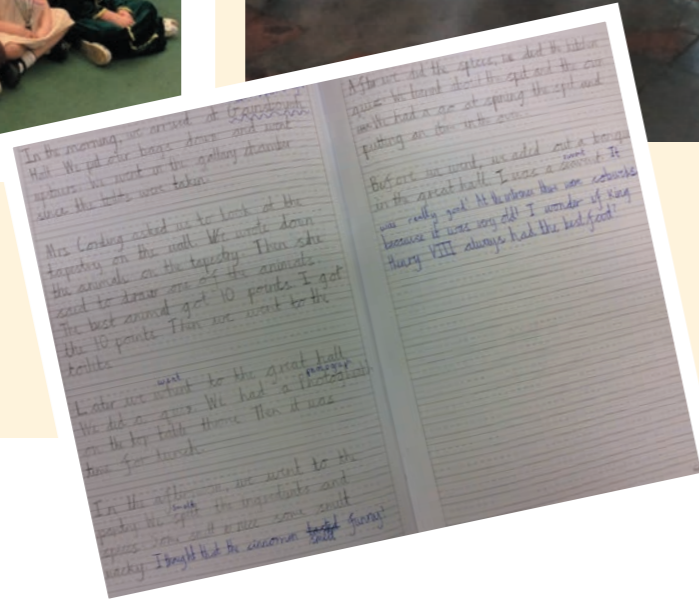 In the morning, we arrived at Gainsborough
Hall. We put our bags down and went
upstairs. We went in the gallery chamber
since the tables were taken.
Mrs Cording asked us to look at the
tapestry on the wall. We wrote down
the animals on the tapestry. Then she
said to draw one of the animals.
The best animal got 10 points. I got
the 10 points. Then we went to the
toilets.
went
Later we to the great hall.
We did a quiz. We had a
on the top table throne. Then it was
time for lunch.
In the we went to the
pantry. We the ingredients and
spices some smelt nice some smelt
wacky. I thought that the cinnamon smelt funny!
After we did the spices, we did the kitchen
quiz. We learnt about the spit and the oven
We had a go at spinning the spit and
putting an item in the oven.
Before we went, we acted out a banquet
in the great hall. I was a servant. It
was really good! At the entrance there were cobwebs
because it was very old! I wonder if King
Henry VIII always had the best food!